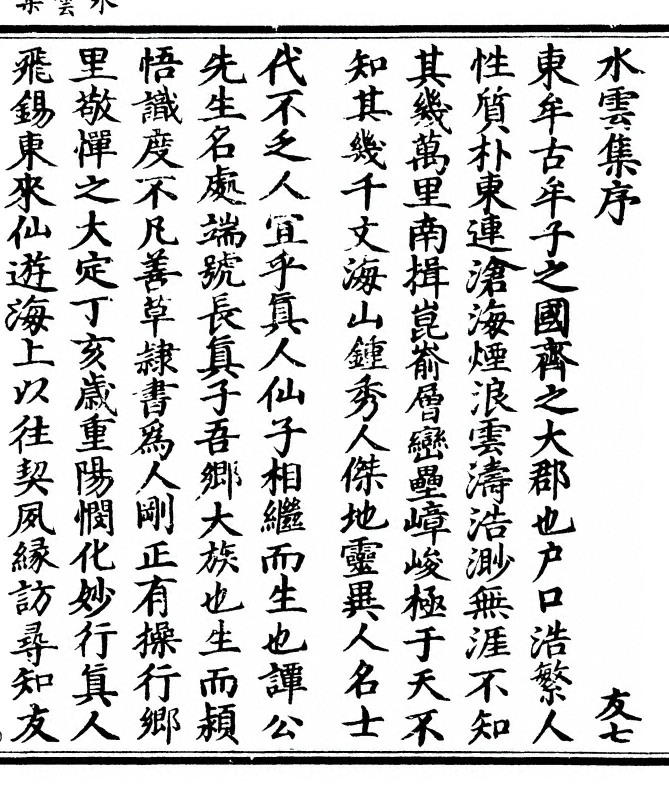 水雲集序 友七
東牟古牟子之國齊之大郡也户口浩繁人
性質朴東連滄海煙浪雲濤浩渺無涯不知
其幾萬里南揖崑嵛層巒壘嶂峻極于天不
知其幾千丈海山鍾秀人傑地靈異人名士
代不乏人宜乎眞人仙子相繼而生也譚公
先生名處端號長眞子吾鄉大族也生而穎
悟識度不凡善草隷書爲人剛正有操行鄉
里敬憚之大定丁亥歲重陽憫化妙行眞人
飛錫東來仙遊海上以往契夙緣訪尋知友